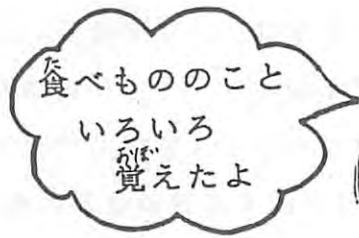 食べもののこと
いろいろ
覚えたよ